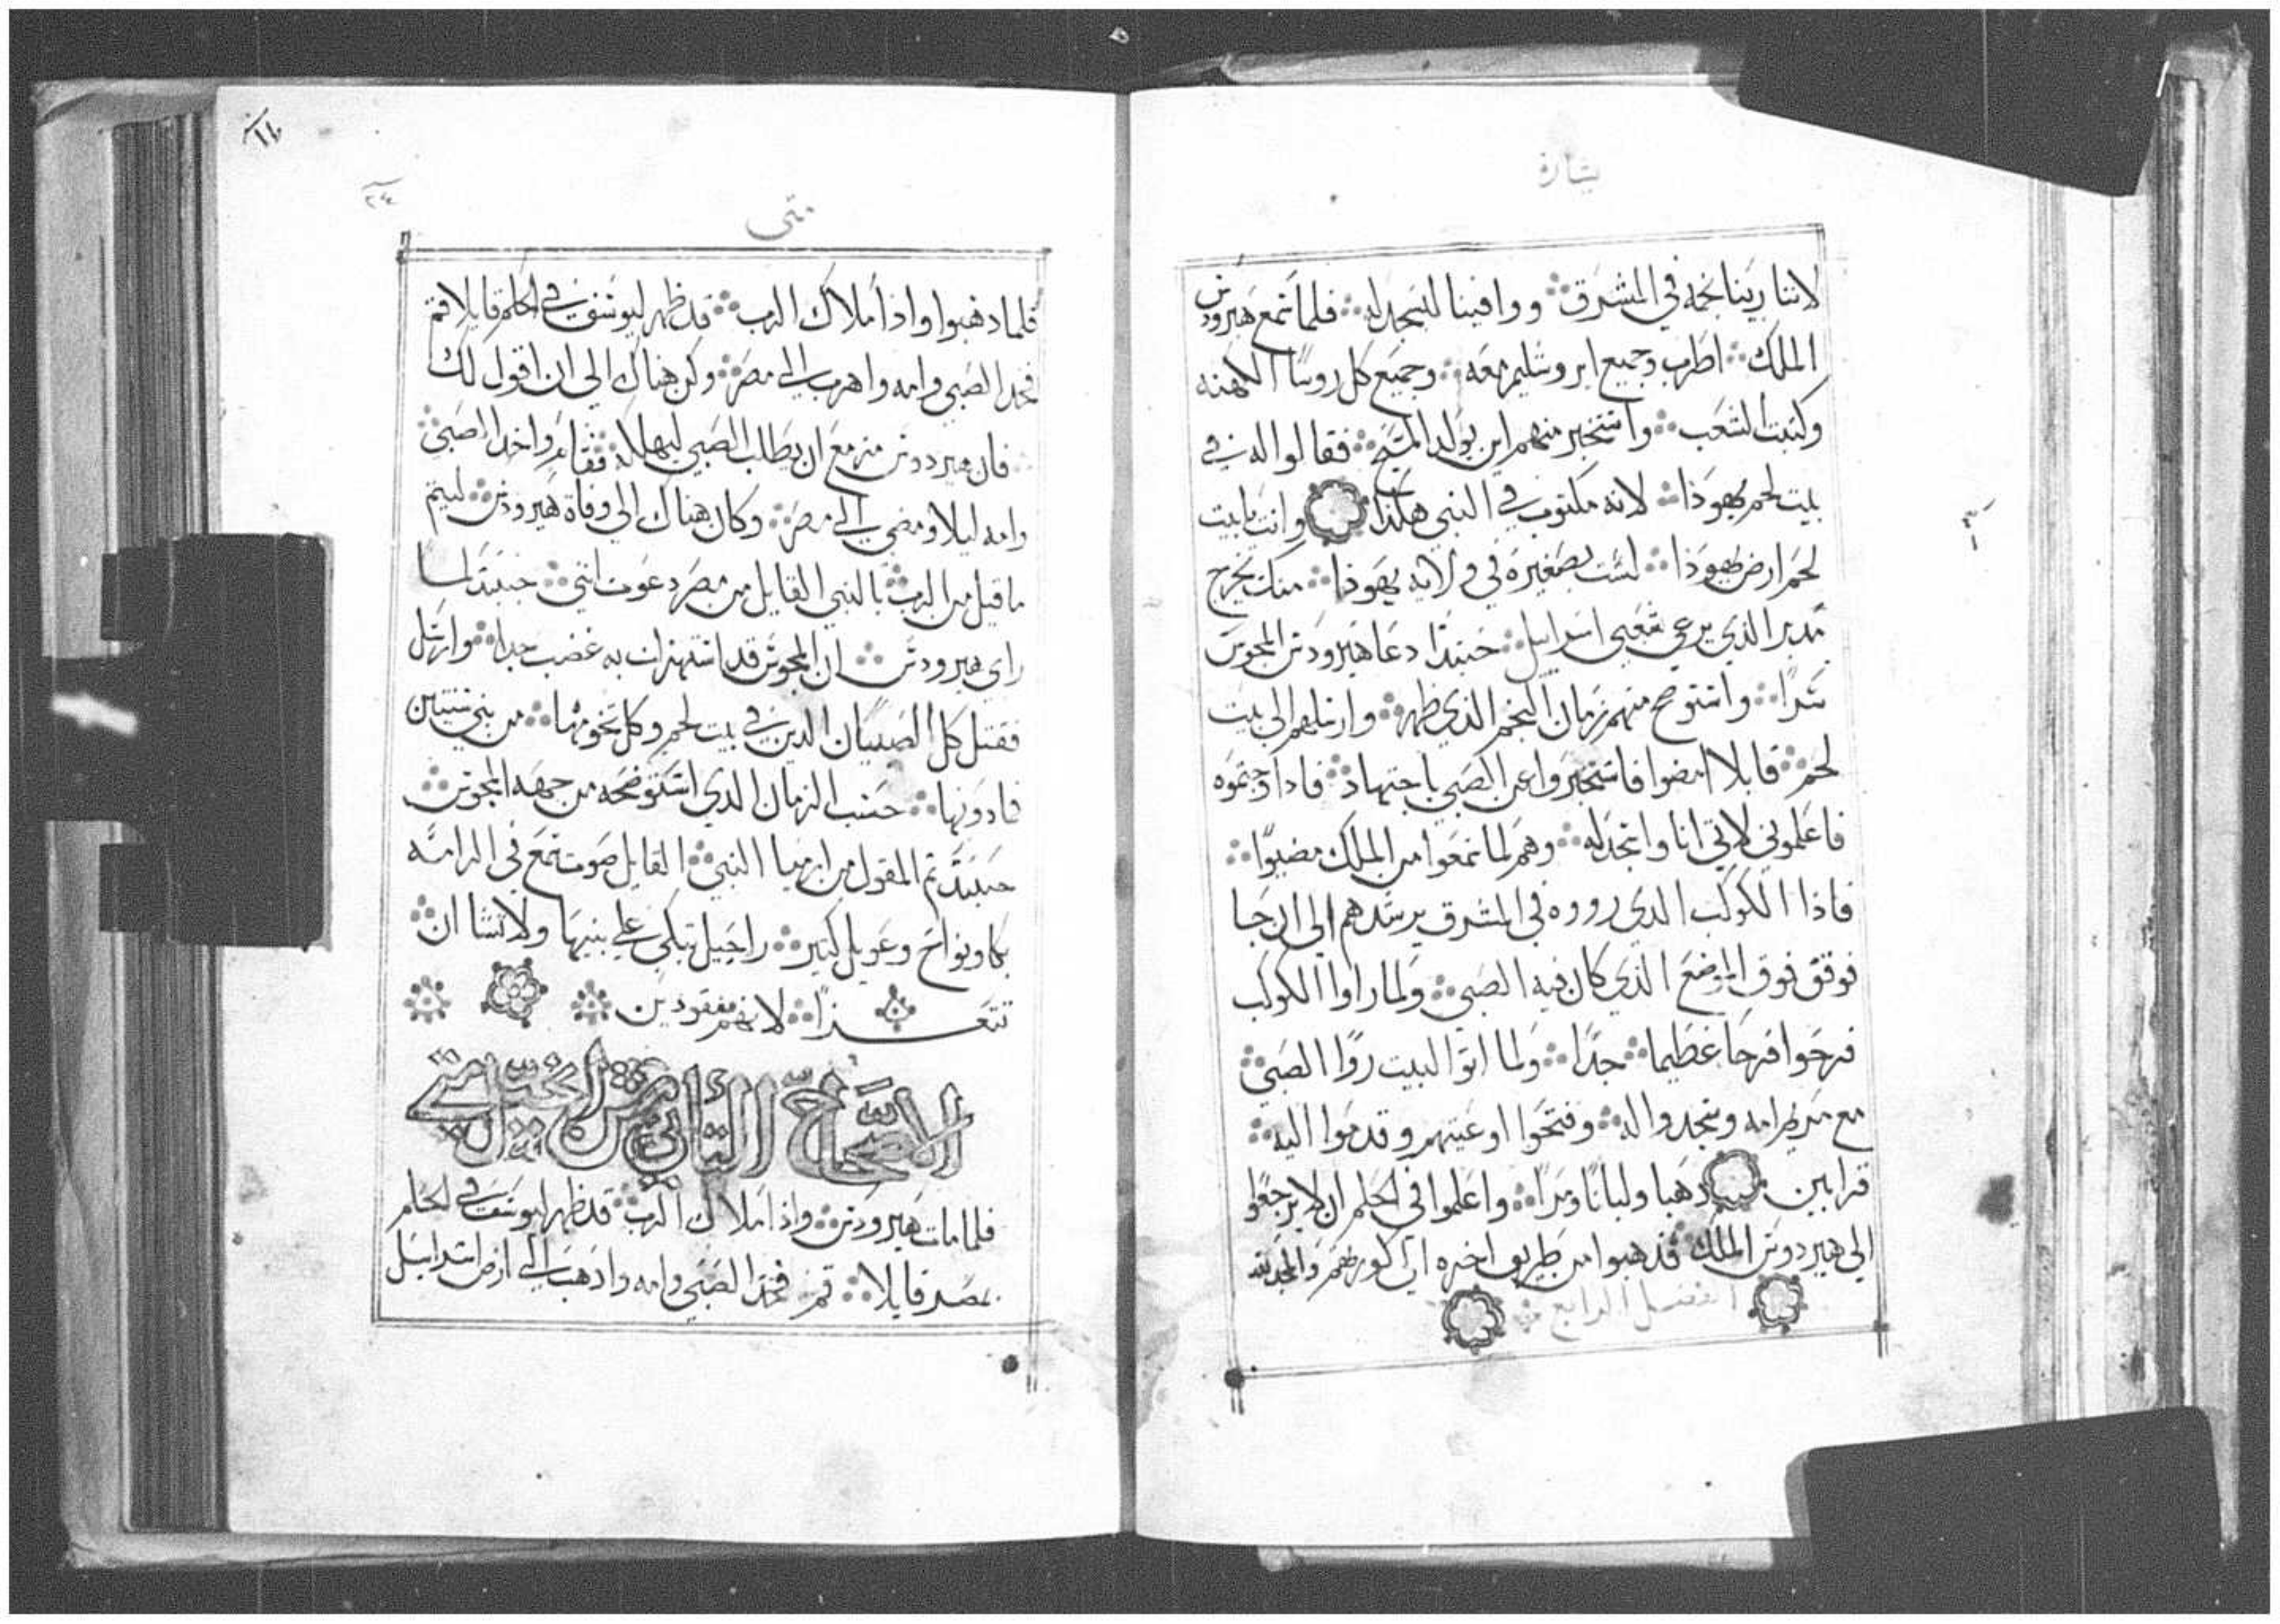 بشارة
لاننا رينا نجمه في المشرق ووافينا لنسجد له فلما سمع هيرودس
الملك اطرب وجميع ايروشليم معه وجميع كل روسا الكهنه
وكتبت الشعب واستخبر منهم اين يولد المسيح فقالوا له في
بيت لحم يهوذا لانه مكتوب في النبي هكذا وانت يا بيت
لحم ارض يهوذا لست بصغيره في ولايه يهوذا منك يخرج
مدبر الذي يرعي شعبي اسراييل حينيذا دعا هيرودس المجوس
سرا واستوضح منهم زمان النجم الذي ظهر وارسلهم الي بيت
لحم قايلا امضوا فاستخبروا عن الصبي باجتهاد فاذا وجدتموه
فاعلموني لاتي انا واسجد له وهم لما سمعوا من الملك مضوا
فاذا الكوكب الذي رووه في المشرق يرشدهم الي ان جا
فوقف فوق الموضع الذي كان فيه الصبي ولما راوا الكوكب
فرحوا فرحا عظيما جدا ولما اتوا البيت روا الصبي
مع مريم امه وسجدوا له وفتحوا اوعيتهم وقدموا اليه
قرابين ذهبا ولبانا ومرا واعلموا في الحلم ان لا يرجعوا
الي هيردوس الملك فذهبوا من طريق اخره الي كورتهم والمجد لله
الفصل الرابع
متى
٢٤
فلما ذهبوا واذا ملاك الرب قد ظهر ليوسف في الحلم قايلا قم
فخذ الصبي وامه واهرب الي مصر وكن هناك الي ان اقول لك
فان هيردوس مزمع ان يطلب الصبي ليهلكه فقام واخد الصبي
وامه ليلا ومضي الي مصر وكان هناك الي وفاة هيرودس ليتم
ما قيل من الرب بالنبي القايل من مصر دعوت ابني حينيذ لما
راي هيرودس ان المجوس قد استهزات به غضب جدا وارسل
فقتل كل الصبيان الذين في بيت لحم وكل تخومها من بني سنتين
فادونها حسب الزمان الذي استوضحه من جهه المجوس
حينيذ تم المقول من ارميا النبي القايل صوت سمع في الرامه
بكا ونواح وعويل كتير راحيل تبكي علي بنيها ولا تشا ان
تتعذا لانهم مفقودين
الاصحاح الثاني من انجيل متى
فلما مات هيرودس واذا ملاك الرب قد ظهر ليوسف في الحلم
بمصر قايلا قم فخذ الصبي وامه واذهب الي ارض اسراييل